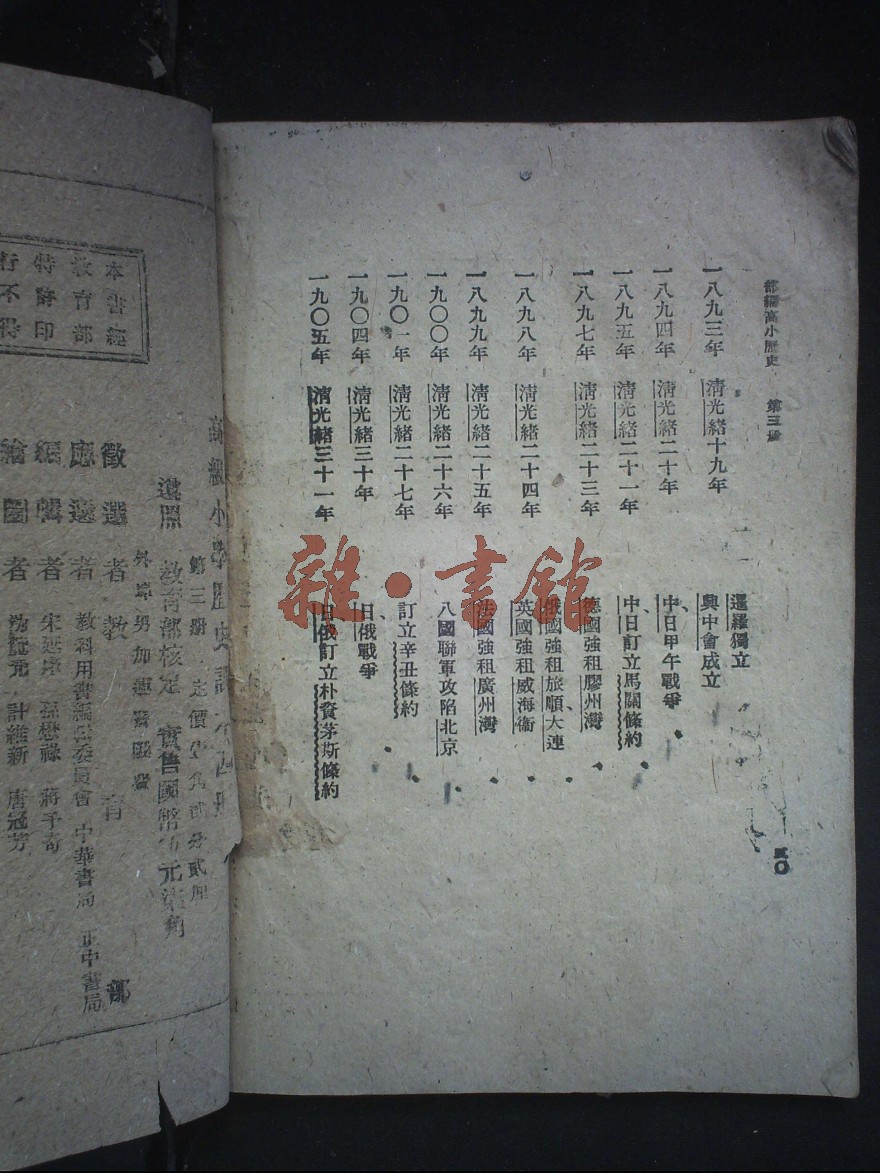 部編高小歷史 第三冊
三〇
暹羅獨立
一八九三年 清光緒十九年 興中會成立
一八九四年 清光緒二十年 中、日甲午戰爭
一八九五年 清光緒二十一年 中、日訂立馬關條約
一八九七年 清光緒二十三年 德國強租膠州灣
俄國強租旅順、大連
一八九八年 清光緒二十四年 英國強租威海衞
一八九九年 清光緒二十五年 法國強租廣州灣
一九〇〇年 清光緒二十六年 八國聯軍攻陷北京
一九〇一年 清光緒二十七年 訂立辛丑條約
一九〇四年 清光緒三十年 日、俄戰爭
一九〇五年 清光緒三十一年 日、俄訂立朴資茅斯條約
雜·書館
本書經
教育部
特許印
行不得
高級小學歷史
第三冊 定價
遵照 教育部核定 實售國幣 元 角
外埠另加運費匯費
徵選者 教育部
應選者 教科用書編 委員會 中華書局 正中書局
編輯者 宋 孫懋祿 蔣子奇
繪圖者 計維新 唐冠芳